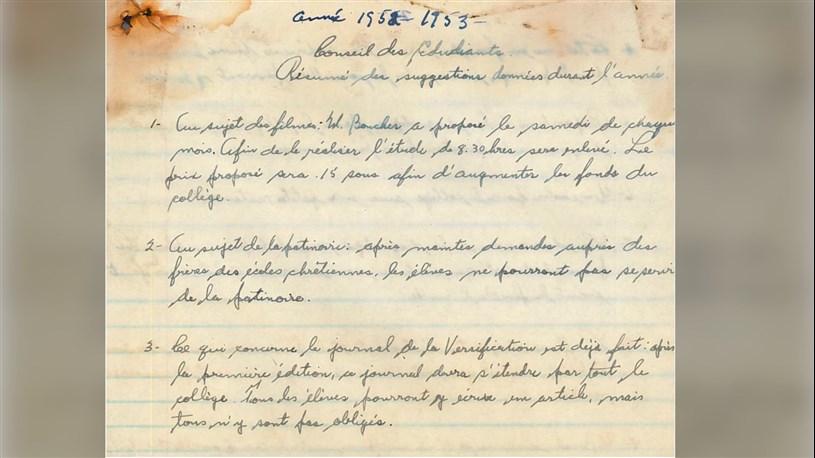 Année 1952-1953-
Conseil des Étudiants.
Résumé des suggestions données durant l'année
1- Au sujet des filmes: Ed. Boucher a proposé le samedi de chaque
mois. Afin de le réaliser l'étude de 8.30 hres sera enlevé. Le
prix proposé sera .15 sous afin d'augmenter les fonds du
collège.
2- Au sujet de la patinoire: après maintes demandes auprès des
frères des écoles chrétiennes, les élèves ne pourront pas se servir
de la patinoire.
3- Ce qui concerne le journal de la Versification est déjà fait: après
la première édition, ce journal devra s'étendre par tout le
collège. Tous les élèves pourront y écrire un article, mais
tous n'y sont pas obligés.